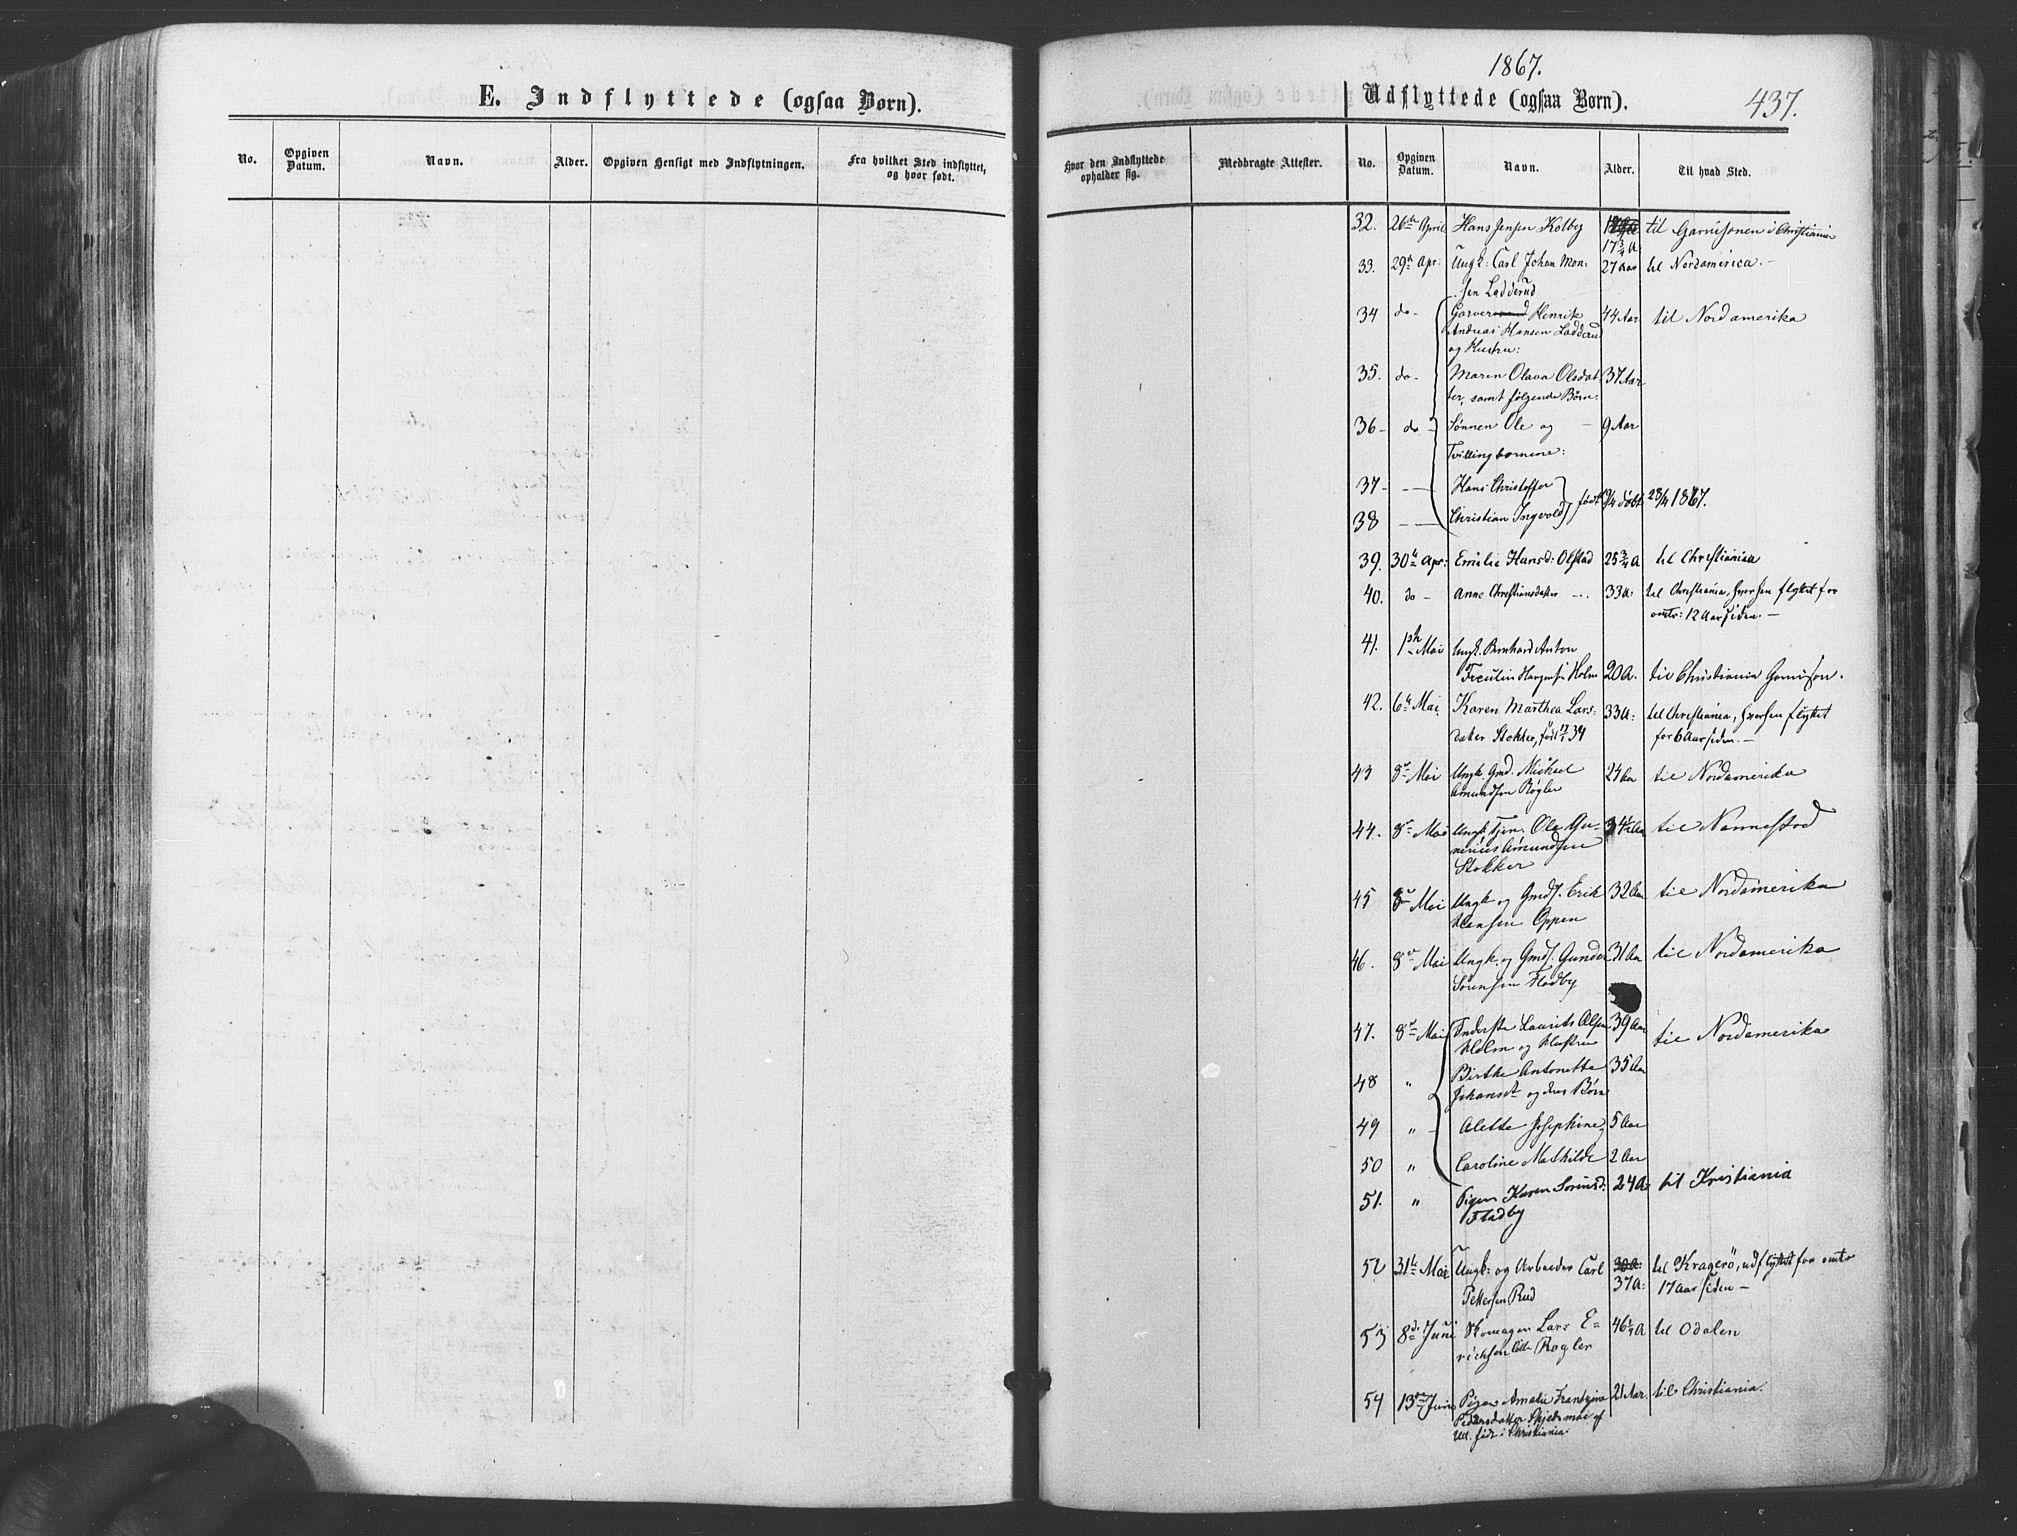 1867.
E. Indflyttede (ogsaa Børn).
Udflyttede (ogsaa Børn).
437.
No. Opgiven Datum. Navn. Alder. Opgiven Hensigt med Indflytningen. Fra hvilket Sted indflyttet, og hvor født.
Hvor den Indflyttede opholder sig. Medbragte Attester. No. Opgiven Datum. Navn. Alder. Til hvad Sted.
32. 26de April Hans Jensen Kolby til Garnisonen i Christiania
17 3/4 A:
33. 29de Apr: Ungk: Carl Johan Mon- 27 Aar til Nordamerica.-
sen Ladderud
34 do- Garver Henrik 44 Aar til Nordamerika
Andreas Hansen Ladderud
og Hustru:
35. do- Maren Olava Olsdat- 37 Aar
ter, samt følgende Børn:
36- do- Sønnen Ole og - 9 Aar
Tvillingbørnene:
37- - - Hans Christoffer
født /4 døbt 28/4 1867.
38 - - Christian Ingvold
39. 30te Apr: Emilie Hansd: Olstad 25 3/4 A til Christiania
40. do - Anne Christiansdatter - .. 33 A: til Christiania, hvorhen flyttet for
omtr: 12 Aar siden. -
41. 1ste Mai Ungk. Bernhard Anton
Holm 20 A. til Christiania Garnison.
42. 6te Mai Karen Marthea Lars- 33 A: til Christiania, hvorhen flyttet
datter Stokker, født 34 for 6 Aar siden. -
43 8de Mai Ungk. Gmd. Michael 24 Aar til Nordamerika
Amundsen Røgler
44. 8de Mai Ungk. Tjen. Ole Gu- 34 Aar til Nannestad
nerius Amundsen
Stokker
45 8de Mai Ungk og Gmds. Erik 32 Aar til Nordamerika
Hansen Oppen
46. 8de Mai Ungk. og Gmds. Gunder 31 Aar til Nordamerika
Sørensen Fladby
47. 8de Mai Inderste Laurits Olsen 39 Aar til Nordamerika
Holm og Hustru
48 " Birthe Antonette 35 Aar
Johansdt og deres Børn
49 " - Alette Josephine, 5 Aar
50 " Caroline Mathilde 2 Aar
51. " Pigen Karen Sørensd: 24 A: til Kristiania
Fladby
52 31te Mai Ungk: og Arbeider Carl 30 A: til Kragerø, udflyttet for omtr
Pettersen Rud 37 A: 17 Aar siden -
53 8de Juni Skomager Lars E- 46 1/4 A til Odalen
richsen Røgler
54 13de Juni Pigen Amalie Frantzine 21 Aar. til Christiania.
Pedersdatter af
Ull. født i Christiania.